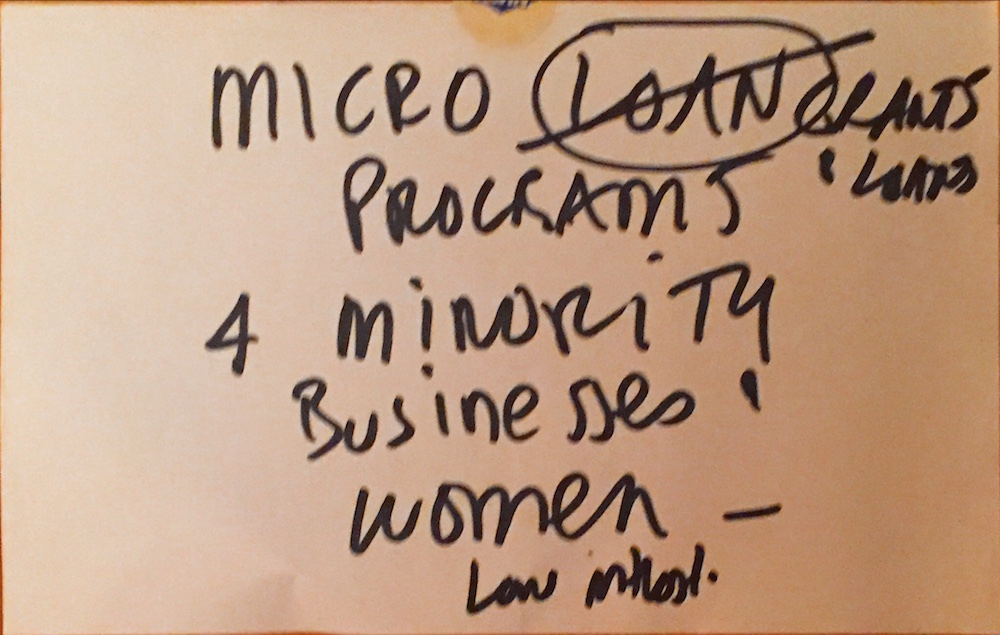 MICRO LOAN GRANTS
' LOANS
PROGRAMS
4 MINORITY
Businesses '
women –
Low